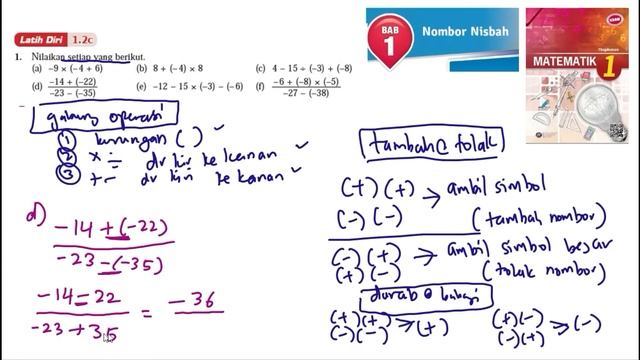 Latih Diri 1.2c
1. Nilaikan setiap yang berikut.
(a) −9 × (−4 + 6) (b) 8 + (−4) × 8 (c) 4 − 15 ÷ (−3) + (−8)
(d) −14 + (−22) / −23 − (−35) (e) −12 − 15 × (−3) − (−6) (f) −6 + (−8) × (−5) / −27 − (−38)
BAB 1 Nombor Nisbah
Tingkatan
MATEMATIK 1
gabung operasi
① kurungan ( ) ✓
② × ÷ dr kiri ke kanan ✓
③ + − dr kiri ke kanan ✓
d)
−14 + (−22)
−23 − (−35)
−14 − 22 = −36
−23 + 35
tambah @ tolak
(+) (+) → ambil simbol
(−) (−) (tambah nombor)
(−) (+) → ambil simbol besar
(+) (−) (tolak nombor)
darab @ bahagi
(+)(+) → (+) (+)(−) → (−)
(−)(−) (−)(+)